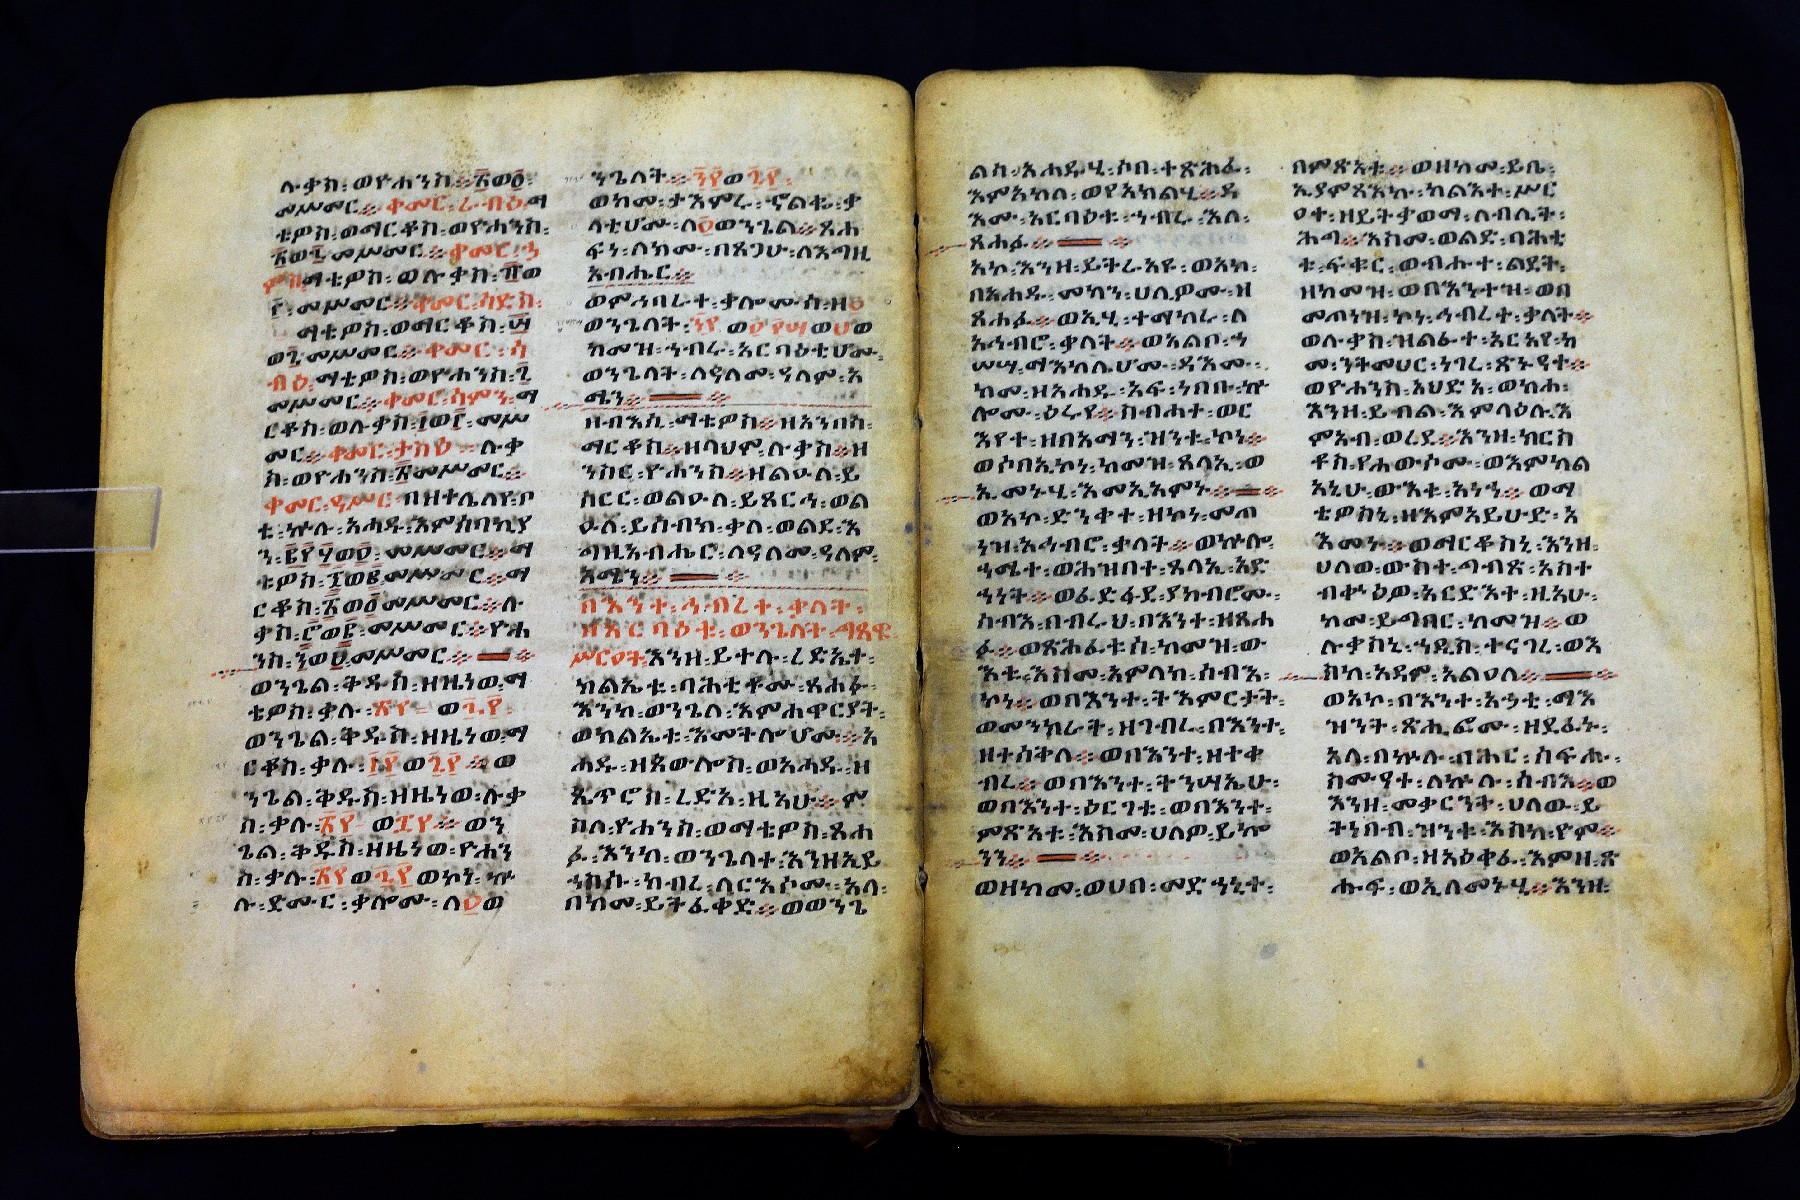 ሉቃስ፡ወዮሐንስ፨፳ወ፩፡
መሥመር፨ቀመር፡ራብዕ፡ማ
ቴዎስ፡ወማርቆስ፡ወዮሐንስ፡
መሥመር፨ቀመር፡ኃ
ምስ፡ማቴዎስ፡ወሉቃስ፡
መሥመር፨ቀመር፡ሳድስ፡
ማቴዎስ፡ወማርቆስ፡
መሥመር፨ቀመር፡ሳ
ብዕ፡ማቴዎስ፡ወዮሐንስ፡
መሥመር፨ቀመር፡ሳምን፡ማ
ርቆስ፡ወሉቃስ፡፲ወ፫፡መሥ
መር፨ቀመር፡ታስዕ፡ሉቃ
ስ፡ወዮሐንስ፡መሥመር፨
ቀመር፡ዓሥር፡በዘተሌለየ፡ቦ
ቱ፡ኵሉ፡አሐዱ፡እምሰባኪያ
ን፡መሥመር፨ማ
ቴዎስ፡መሥመር፨ማ
ርቆስ፡መሥመር፨ሉ
ቃስ፡መሥመር፨ዮሐ
ንስ፡መሥመር፨
ወንጌል፡ቅዱስ፡ዘዜነወ፡ማ
ቴዎስ፡ቃሉ፡
ወንጌል፡ቅዱስ፡ዘዜነወ፡ማ
ርቆስ፡ቃሉ፡፨ወ
ንጌል፡ቅዱስ፡ዘዜነወ፡ሉቃ
ስ፡ቃሉ፡፨ወን
ጌል፡ቅዱስ፡ዘዜነወ፡ዮሐን
ስ፡ቃሉ፡ወኮነ፡ኵ
ሉ፡ድመር፡ቃሎሙ፡ለ፬ወ
ንጌላት፨
ወከመ፡ታእምሩ፡ኖልቈ፡ቃ
ላቲሆሙ፡ለ፬ወንጌል፨ጸሐ
ፍነ፡ለክሙ፡በጸጋሁ፡ለእግዚ
አብሔር፨
ወምኅበራተ፡ቃሎሙሰ፡ዘ፬
ወንጌላት፡
ከመዝ፡ኀብሩ፡አርባዕቲሆሙ፡
ወንጌላት፡ለዓለመ፡ዓለም፡አ
ሜን፨
ዘብእሲ፡ማቴዎስ፨ዘአንበሳ፡
ማርቆስ፨ዘላህም፡ሉቃስ፨ዘ
ንስር፡ዮሐንስ፨ዘልዑለ፡ይ
ሰርር፡ወልዑለ፡ይጸርኅ፡ወል
ዑለ፡ይሰብክ፡ቃለ፡ወልደ፡እ
ግዚአብሔር፡ለዓለመ፡ዓለም፡
አሜን፨
በእንተ፡ኅብረተ፡ቃላት፡
ዘአርባዕቱ፡ወንጌላት፡
ሥርዐት፡እንዘ፡ይተሉ፡ረድኤተ፡
ክልኤቱ፡ባሕቲቶሙ፡ጸሐፉ፡
እንከ፡ወንጌለ፡እምሐዋርያት፡
ወክልኤቱ፡እመትሎሆሙ፨አ
ሐዱ፡ዘጳውሎስ፡ወአሐዱ፡ዘ
ጴጥሮስ፡ረድአ፡ዚአሁ፨ም
ስለ፡ዮሐንስ፡ወማቴዎስ፡ጸሐ
ፉ፡እንከ፡ወንጌላተ፡እንዘ፡ኢይ
ኀስሱ፡ክብረ፡ለርእሶሙ፡አላ፡
በከመ፡ይትፈቀድ፨ወወንጌ
ልሰ፡አሐዱሂ፡ሶበ፡ተጽሕፈ፡
እምአከለ፡ወየአክልሂ፨ዳ
እሙ፡አርባዕቱ፡ኀብሩ፡እለ፡
ጸሐፉ፨
አኮ፡እንዘ፡ይትራአዩ፡ወአኮ፡
በአሐዱ፡መካን፡ሀሊዎሙ፡ዘ
ጸሐፉ፨ወኢሂ፡ተማከሩ፡ለ
አኅብሮ፡ቃላት፨ወአልቦ፡ኀ
ሠሣ፡ማእከሌሆሙ፡ዳእሙ፡
ከመ፡ዘአሐዱ፡አፍ፡ነበቡ፡ኵ
ሎሙ፡ዕሩየ፨ስብሐተ፡ወር
እየተ፡ዘበአማን፡ዝንቱ፡ኮነ፨
ወሶበ፡ኢኮነ፡ከመዝ፡ጸላኢ፡ወ
ኢመኑሂ፡እመ፡ኢአምኑ፨
ወአኮ፡ድንቀተ፡ዘኮነ፡መጠ
ነዝ፡አኅብሮ፡ቃላት፨ወኵሎ፡
ኀሜተ፡ወሕዝበተ፡ጸላኢ፡አድ
ኀነት፨ወፈድፋደ፡ያከብሮሙ፡
ሰብእ፡በብሩህ፡በእንተ፡ዘጸሐ
ፉ፨ወጽሕፈቱሰ፡ከመዝ፡ው
እቱ፡እስመ፡አምላክ፡ሰብአ፡
ኮነ፨ወበእንተ፡ትእምርታት፡
ወመንክራት፡ዘገብረ፡በእንተ፡
ዘተሰቅለ፨ወበእንተ፡ዘተቀ
ብረ፨ወበእንተ፡ትንሣኤሁ፡
ወበእንተ፡ዕርገቱ፡ወበእንተ፡
ምጽአቱ፡እስመ፡ሀለዎ፡ይኰ
ንን፨
ወዘከመ፡ወሀበ፡መድኀኒተ፡
በምጽአቱ፨ወዘከመ፡ይቤ፡
ኢያምጻእኩ፡ካልአተ፡ሥር
ዐተ፡ዘይትቃወማ፡ለብሊት፡
ሕግ፨እስመ፡ወልድ፡ባሕቲ
ቱ፡ፍቁር፡ወብሑተ፡ልደት፡
ዘከመዝ፡ወበእንተዝ፡ወበ
መጠነዝ፡ኮነ፡ኅብረተ፡ቃላት፨
ወሉቃስ፡ዝልፉተ፡አርአየ፡ከ
መ፡ንትመሀር፡ነገረ፡ጽኑዳተ፨
ወዮሐንስ፡አሀድአ፡ወከሐ፡
እንዘ፡ይብል፡እምላዕሉ፡እ
ምአብ፡ወረደ፨እንዘ፡ክርስ
ቶስ፡የሐውሶሙ፡ወእምካል
አኒሁ፡ውእቱ፡አነነ፨ወማ
ቴዎስኒ፡ዘእምአይሁድ፡አ
እመን፨ወማርቆስኒ፡እንዘ፡
ሀለወ፡ውስተ፡ግብጽ፡አስተ
ብቀኍዕዎ፡አርድእት፡ዚአሁ፡
ከመ፡ይግበር፡ከመዝ፨ወ
ሉቃስኒ፡ኀዲስ፡ተናገረ፡ወእ
ስከ፡አዳም፡አልዐለ፨
ወአኮ፡በእንተ፡አኃቲ፡ማእ
ዝንት፡ጽሒፎሙ፡ዘደፈኑ፡
አላ፡በኵሉ፡ብሔር፡ሰፍሑ፡
ከሙያተ፡ለኵሉ፡ሰብእ፨ወ
እንዘ፡መቃርንት፡ሀለው፡ይ
ትነበብ፡ዝንቱ፡እስከ፡ዮም፨
ወአልቦ፡ዘአዕቀፈ፡እምዘ፡ጽ
ሑፍ፡ወኢለመኑሂ፨እንዘ፡